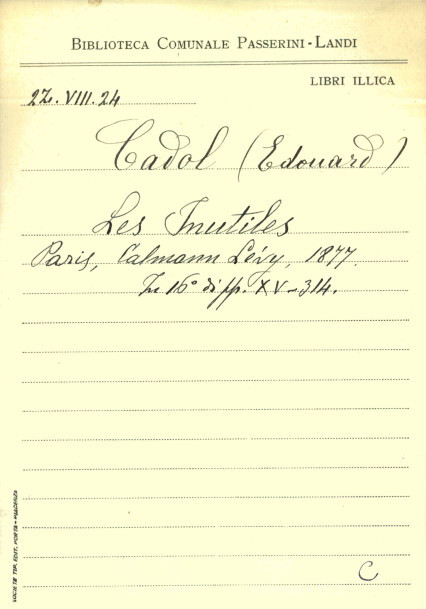 BIBLIOTECA COMUNALE PASSERINI-LANDI
LIBRI ILLICA
2Z.VIII.24
Cadol (Edouard)
Les Inutiles
Paris, Calmann Lévy, 1877.
In 16° di pp. XV-314.
C